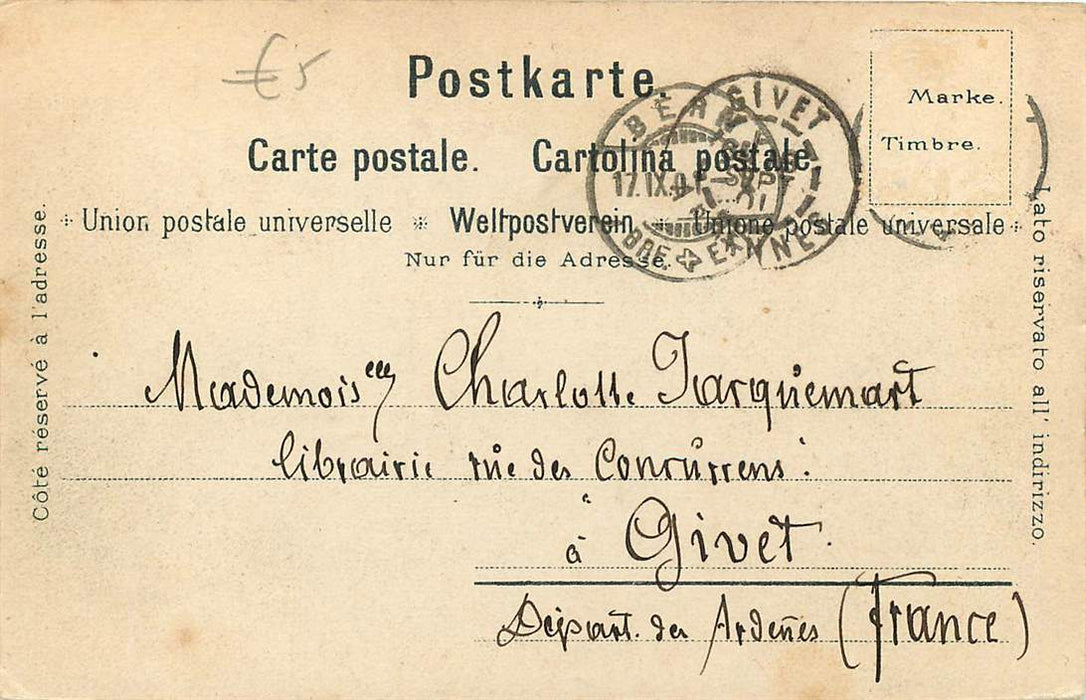 €5
Postkarte.
Marke.
Timbre.
Carte postale. Cartolina postale
Union postale universelle * Weltpostverein * Unione postale universale
Nur für die Adresse.
Côté réservé à l'adresse.
Lato riservato all' indirizzo.
BERN
17.IX.01
BRF.
GIVET
SEPT
01
Mademoiselle Charlotte Jacquemart
librairie rue des
à Givet.
Départ. des Ardenes (France)